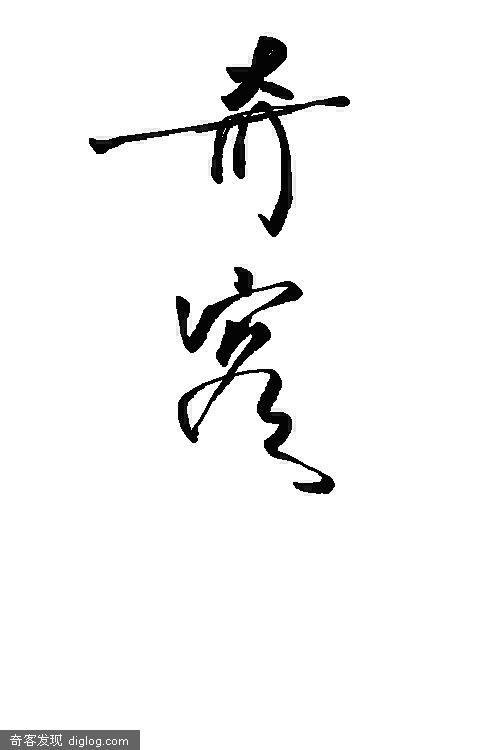 奇
客
奇客发现 diglog.com